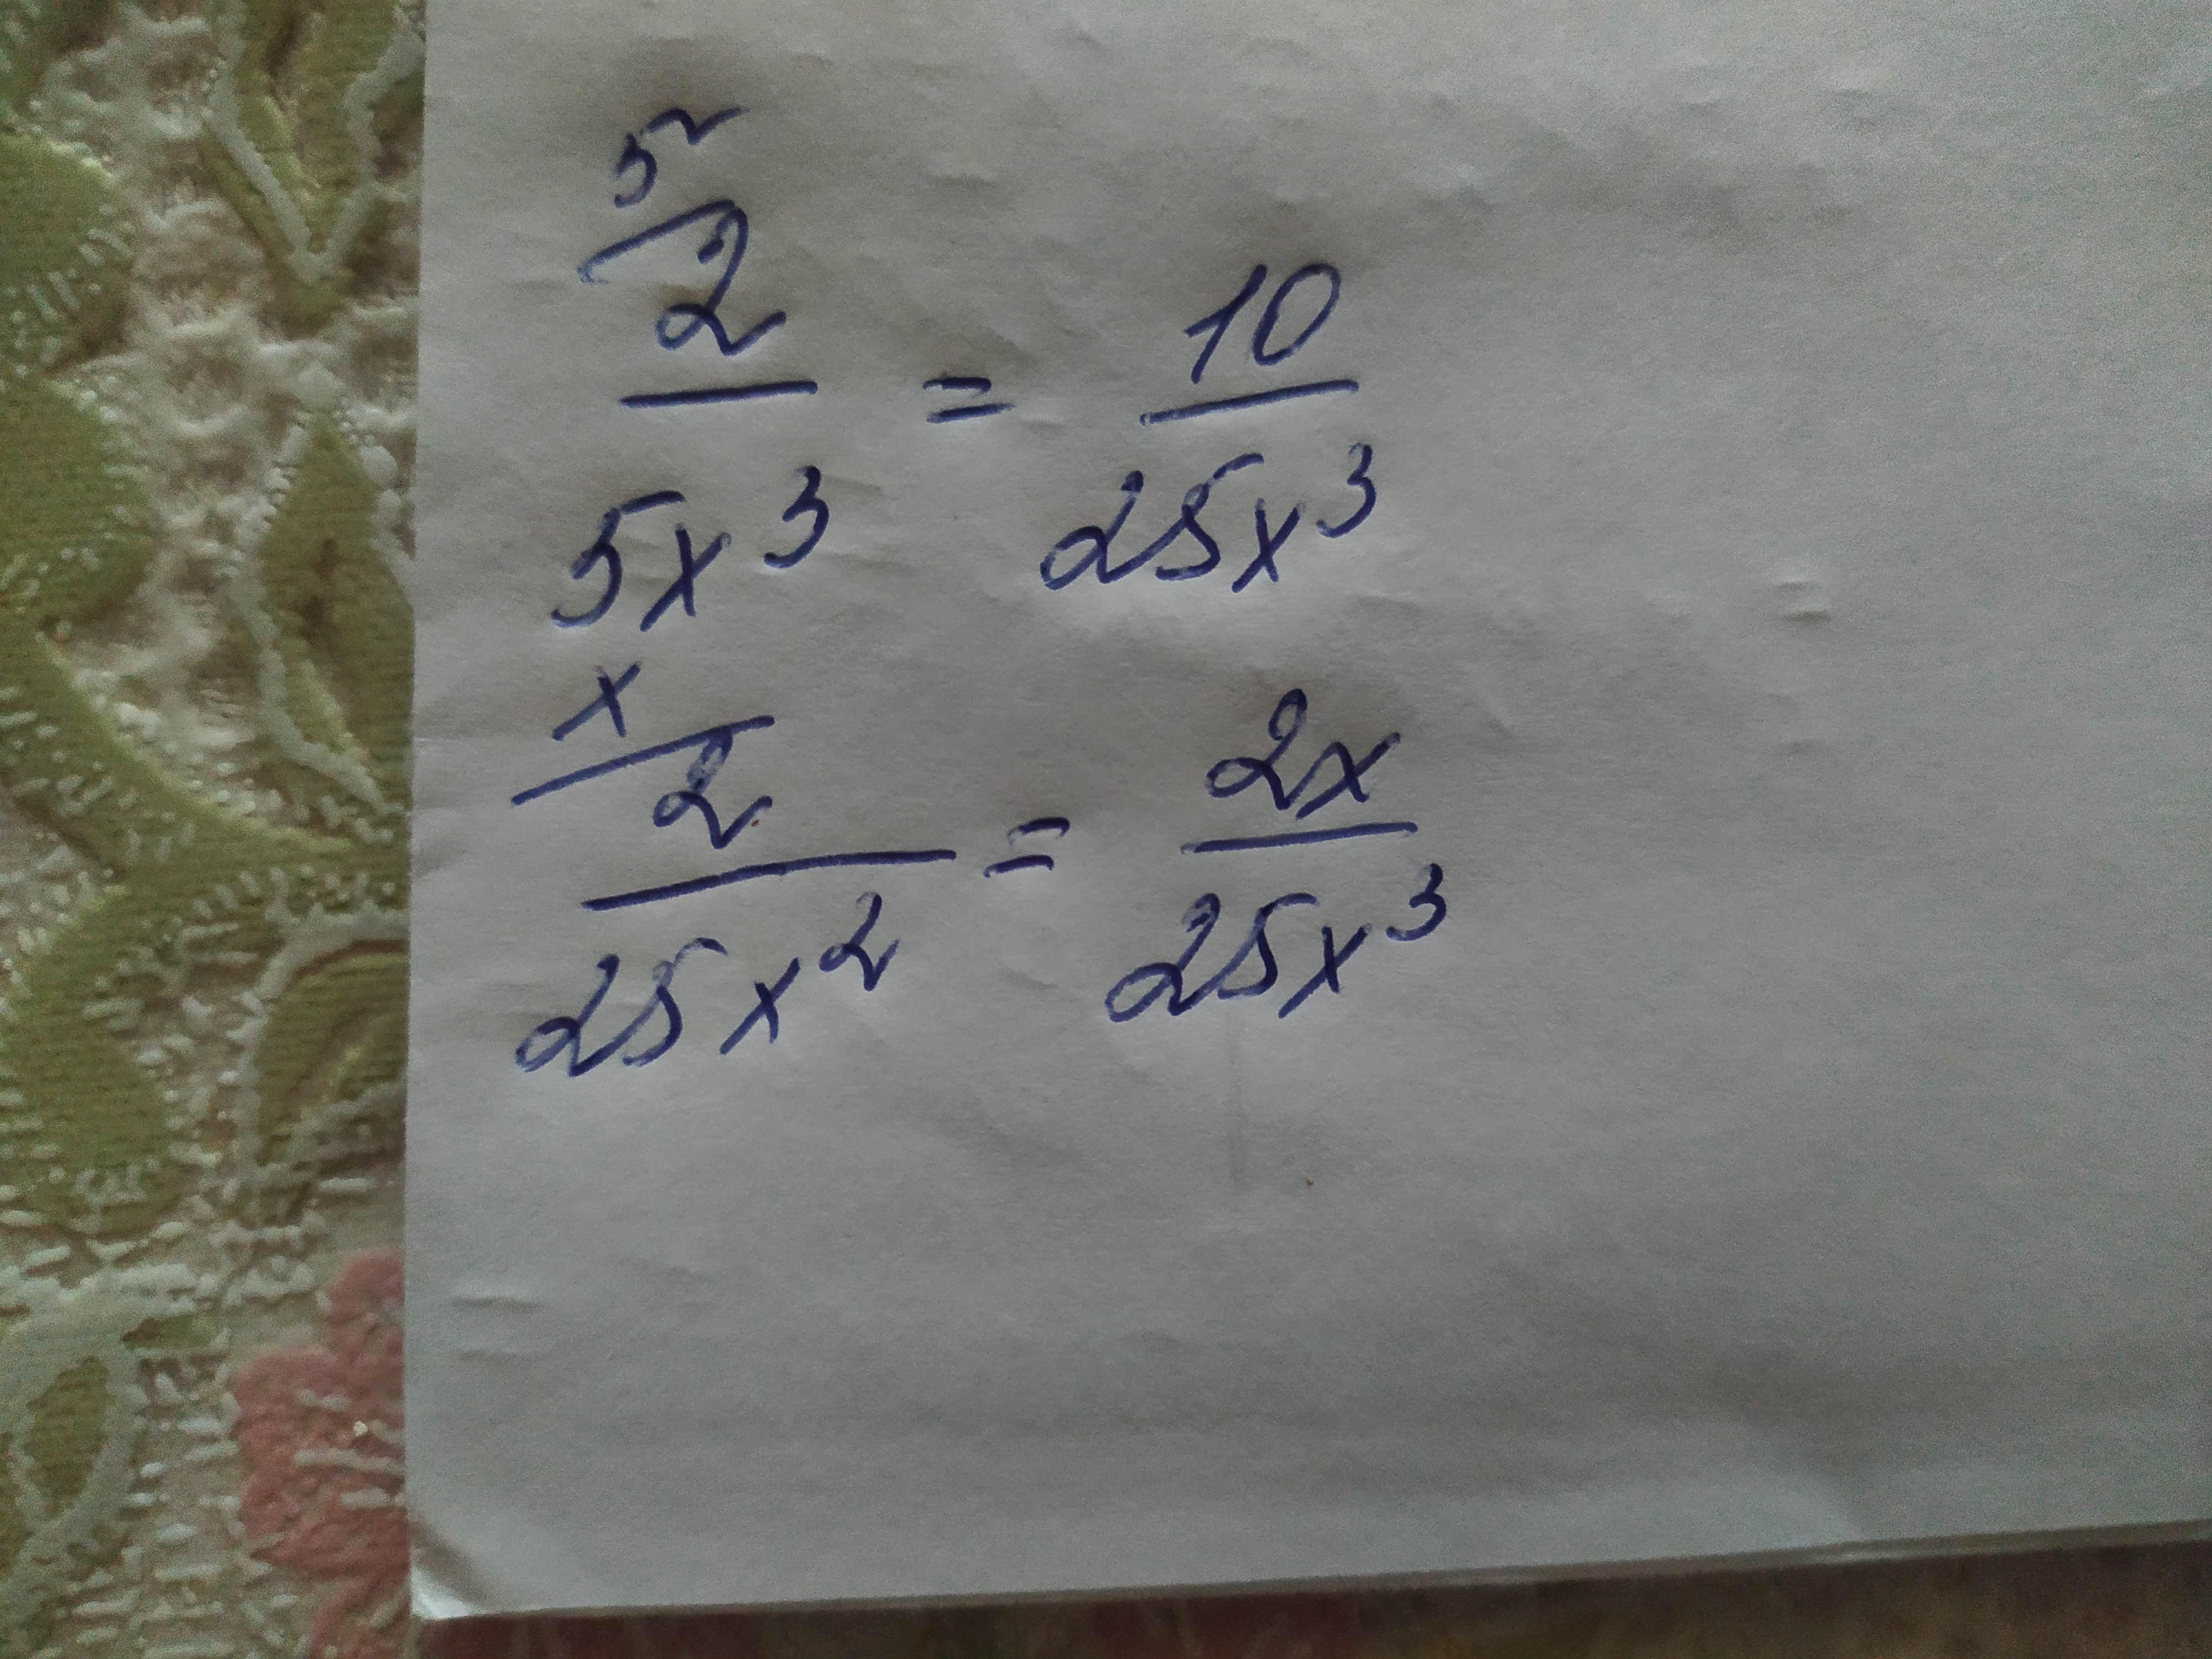 5
2 / 5x³ = 10 / 25x³
x
2 / 25x² = 2x / 25x³